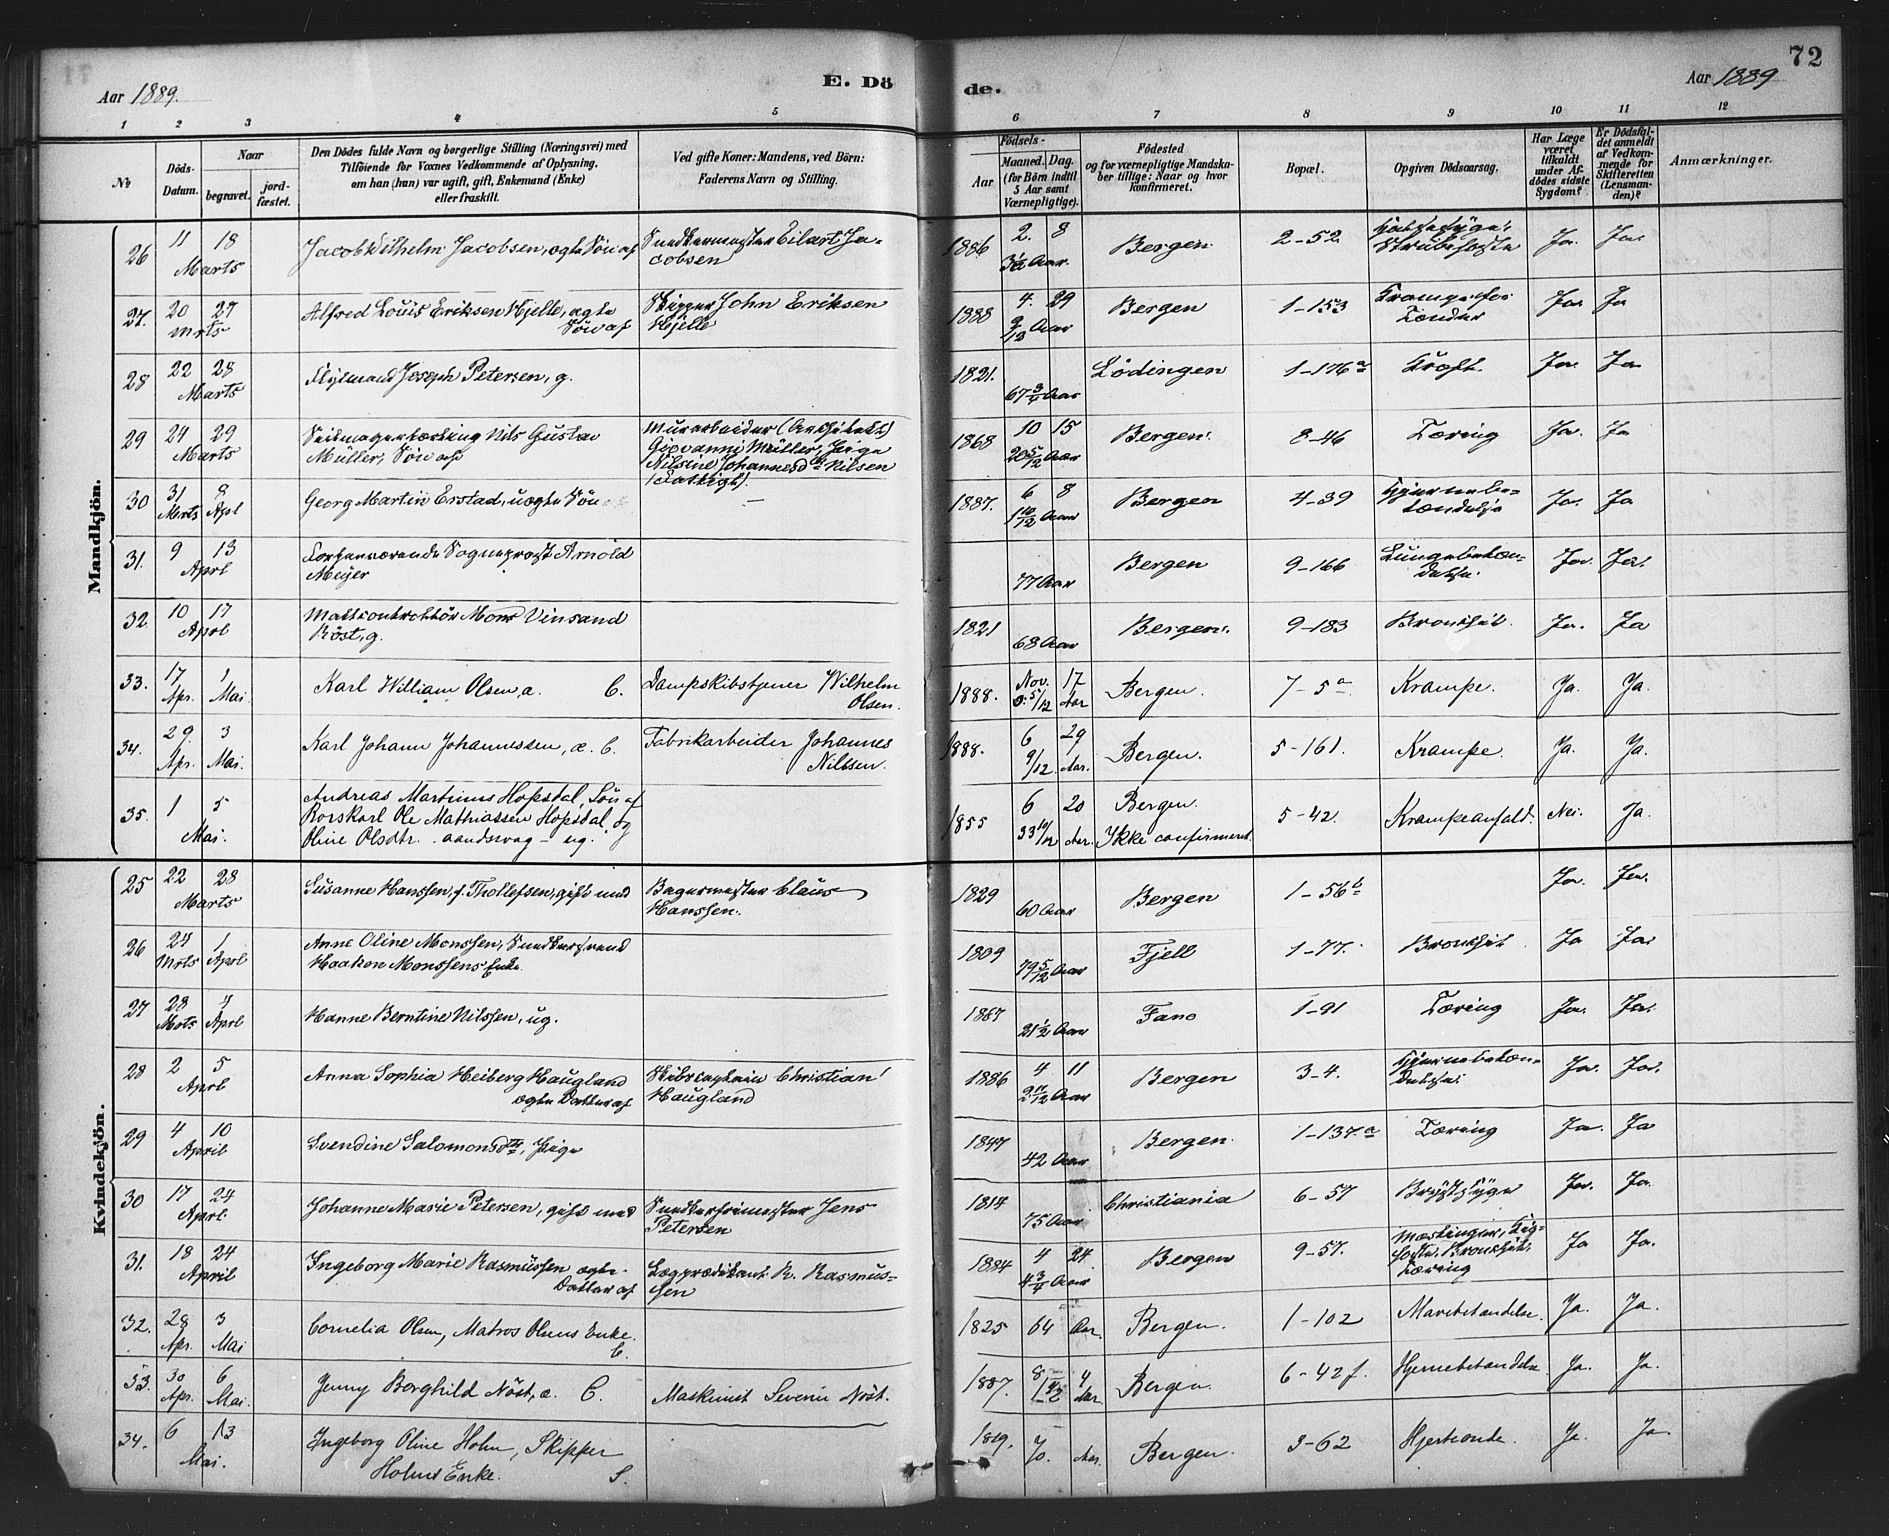 72
Aar 1889.
E. Dö
de.
Aar 1889
1 2 3 4 5 6 7 8 9 10 11 12
No
Döds-Datum.
Naar
begravet.
jord-fæstet.
Den Dödes fulde Navn og borgerlige Stilling (Næringsvei) med
Tilföiende for Voxnes Vedkommende af Oplysning,
om han (hun) var ugift, gift, Enkemand (Enke)
eller fraskilt.
Ved gifte Koner: Mandens, ved Börn:
Faderens Navn og Stilling.
Födsels-
Aar
Maaned. Dag.
(for Börn indtil
5 Aar samt
Værnepligtige).
Födested
og for værnepligtige Mandska-
ber tillige: Naar og hvor
konfirmeret.
Bopæl.
Opgiven Dödsaarsag.
Har Læge
været
tilkaldt
under Af-
dödes sidste
Sygdom?
Er Dödsfal-
det anmeldt
af Vedkom-
mende for
Skifteretten
(Lensman-
den)?
Anmærkninger.
Mandkjön.
26 11 18 Marts Jacob Wilhelm Jacobsen, ægte Sön af Snedkermester Eilart Ja-
cobsen 1886 2. 8 Bergen. 2-52 Halssyge, Strubehoste Ja. Ja.
27. 20 27 Mrts Alfred Louis Eriksen Hjelle, ægte
Sön af Skipper John Eriksen
Hjelle 1888 4. 29 9/12 Aar Bergen 1-153 Krampe for
Tænder Ja. Ja
28 22 28 Marts Joseph Petersen, g. 1821. 67 3/4 Aar Lödingen 1-176a Kræft. Ja. Ja
29 24 29 Marts Seilmagerlærling Nils Gustav
Müller, Sön af Murarbeider (Arkitekt)
Giovanni Müller, Pige
Nilsine Johannesd. Nilsen
(Fattigt). 1868 10 15 20 5/12 Aar Bergen. 8-46 Tæring Ja. Ja
30 31 Mrts 8 Apl Georg Martin Erstad, uægte Sön - 1887. 6 8 1 10/12 Aar Bergen 4-39 Hjernebe-
tændelse Ja. Ja
31. 9 13 Aprl Forhenværende Sogneprest Arnold
Meyer 77 Aar Bergen 9-166 Lungebetæn-
delse. Ja. Ja.
32. 10 17 Aprl Mons Vinsand
Röst, g. 1821 68 Aar Bergen. 9-183 Bronchit. Ja. Ja
33. 17 Apr. 1 Mai. Karl William Olsen, æ. C. Dampskibstjener Wilhelm
Olsen. 1888. Nov. 17 0 5/12 Aar Bergen. 7-5a Krampe. Ja. Ja.
34. 29. Apr. 3 Mai. Karl Johann Johannessen, æ. C. Fabrikarbeider Johannes
Nilssen. 1888. 6 29 9/12 Aar. Bergen. 5-161. Krampe. Ja. Ja.
35. 1 5 Mai. Andreas Martinus Hopsdal, Sön af
Rorskarl Ole Mathiassen Hopsdal og
Oline Olsdtr. aandssvag - ug. 1855 6 20 33 10/12 Aar. Bergen.
Ikke confirmeret. 5-42. Krampeanfald. Nei. Ja.
Kvindekjön.
25 22 28 Marts Susanne Hanssen, f. Thollefsen, gift med Bagermester Claus
Hanssen. 1829 60 Aar Bergen 1-56b Ja. Ja.
26 24 Mrts 1 Aprl Anne Oline Monssen, Snedkersvend
Haaken Monssens Enke 1809 79 5/12 Aar Fjell 1-77. Bronchit Ja Ja.
27 28 Mrts 4 Aprl Hanne Berntine Nilssen, ug. 1867 21 1/2 Aar Fano 1-91 Tæring Ja. Ja.
28 2 5 Aprl Anna Sophia Heiberg Haugland
ægte Datter af Skibscaptain Christian
Haugland 1886 4 11 2 11/12 Aar Bergen 3-4. Hjernebetæn-
delse. Ja. Ja.
29 4 10 April Svendine Salomonsdtr, Pige 1847 42 Aar Bergen. 1-137.a Tæring Ja. Ja
30 17 24 Aprl. Johanne Marie Petersen, gift med Snedkerformester Jens
Petersen 1814 75 Aar Christiania 6-57 Brystsyge Ja. Ja.
31. 18 24 April Ingeborg Marie Rasmussen ægte
Datter af Lægprædikant R. Rasmus-
sen 1884 4 24 4 3/4 Aar Bergen 9-57. Mæslinger, Kig-
hoste, Bronchit,
Tæring Ja Ja.
32. 28 Apr. 3 Mai Cornelia Olsen, Matros Olsens Enke.
C. 1825 64 Aar. Bergen. 1-102 Mavebetændelse. Ja. Ja.
33. 30 Apr. 6 Mai. Jenny Borghild Nöst, æ. C. Maskinist Severin Nöst. 1887. 8 4 Aar. Bergen. 6-42f. Hjernebetændelse Ja. Ja.
34. 6 13 Mai. Ingeborg Oline Holm, Skipper
Holms Enke. S. 1819. 70. Aar. Bergen. 3-62 Hjerteonde. Ja. Ja.